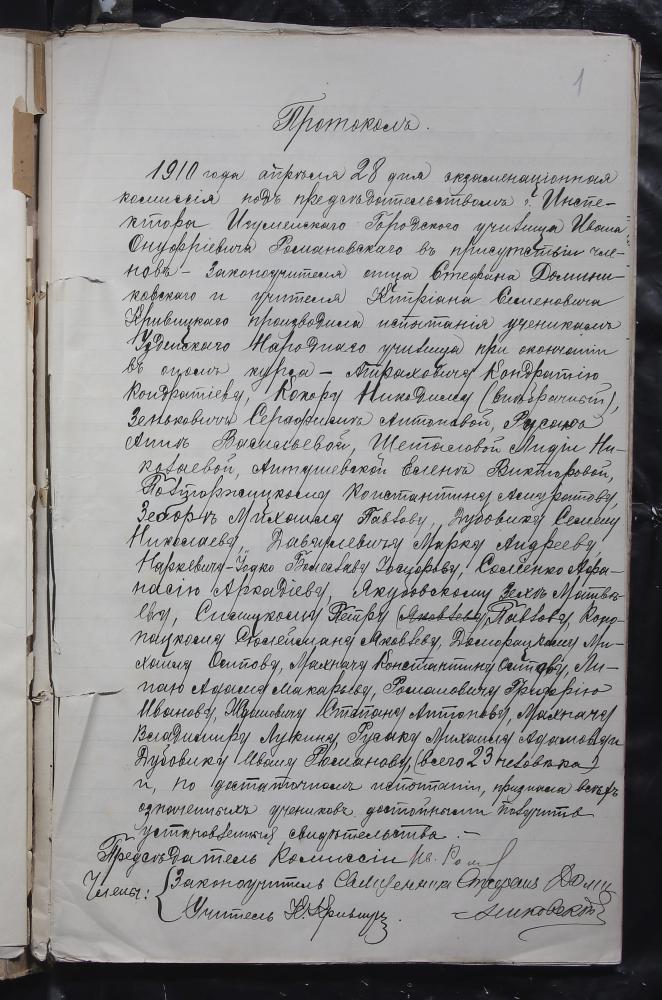 1
Протоколъ.
1910 года апрѣля 28 дня экзаменаціонная
комиссія подъ предсѣдательствомъ г. Инспе-
ктора Игуменскаго Городского училища Ивана
Онуфріевича Романовскаго въ присутствіи чле-
новъ – Законоучителя отца Стефана Домини-
ковскаго и учителя Кипріана Семеновича
Кривицкаго производила испытанія ученикамъ
Узденскаго Народнаго училища при окончаніи
въ ономъ курса – Атраховичу Кондратію
Кондратіеву, Кохору Никодиму
Зеньковичъ Серафимѣ Антоновой, Русакъ
Аннѣ Васильевой, Щетьковой Лидіи Ни-
колаевой, Антушевской Еленѣ Викторовой,
Константину
Михаилу Павлову, Дубовику Семену
Николаеву, Давидевичу Марку Андрееву
Наркевичъ-Іодко Болеславу Сосценко Афа-
насію Аркадіеву, Якубовскому Матвѣ-
еву, Синицкому Петру (Яковлеву) Павлову, Коро-
пацкому Сюлейману Яковлеву, Доморацкому Ми-
хаилу Осипову, Махначу Константину Осипову, Ли-
паю Адаму Макарьеву, Романовичу Григорію
Иванову, Степану Антонову, Махначу
Владимиру Лукину, Русаку Михаилу Адамову и
Дубовику Ивану Романову (всего 23 человѣка)
и, по достаточномъ испытаніи, признала всѣхъ
означенныхъ учениковъ достойными получить
установленныя свидѣтельства. –
Предсѣдатель Комиссіи Ив. Ром
Члены: Законоучитель Священникъ Стефанъ Доми
никовскій
Учитель К. Кривицкі